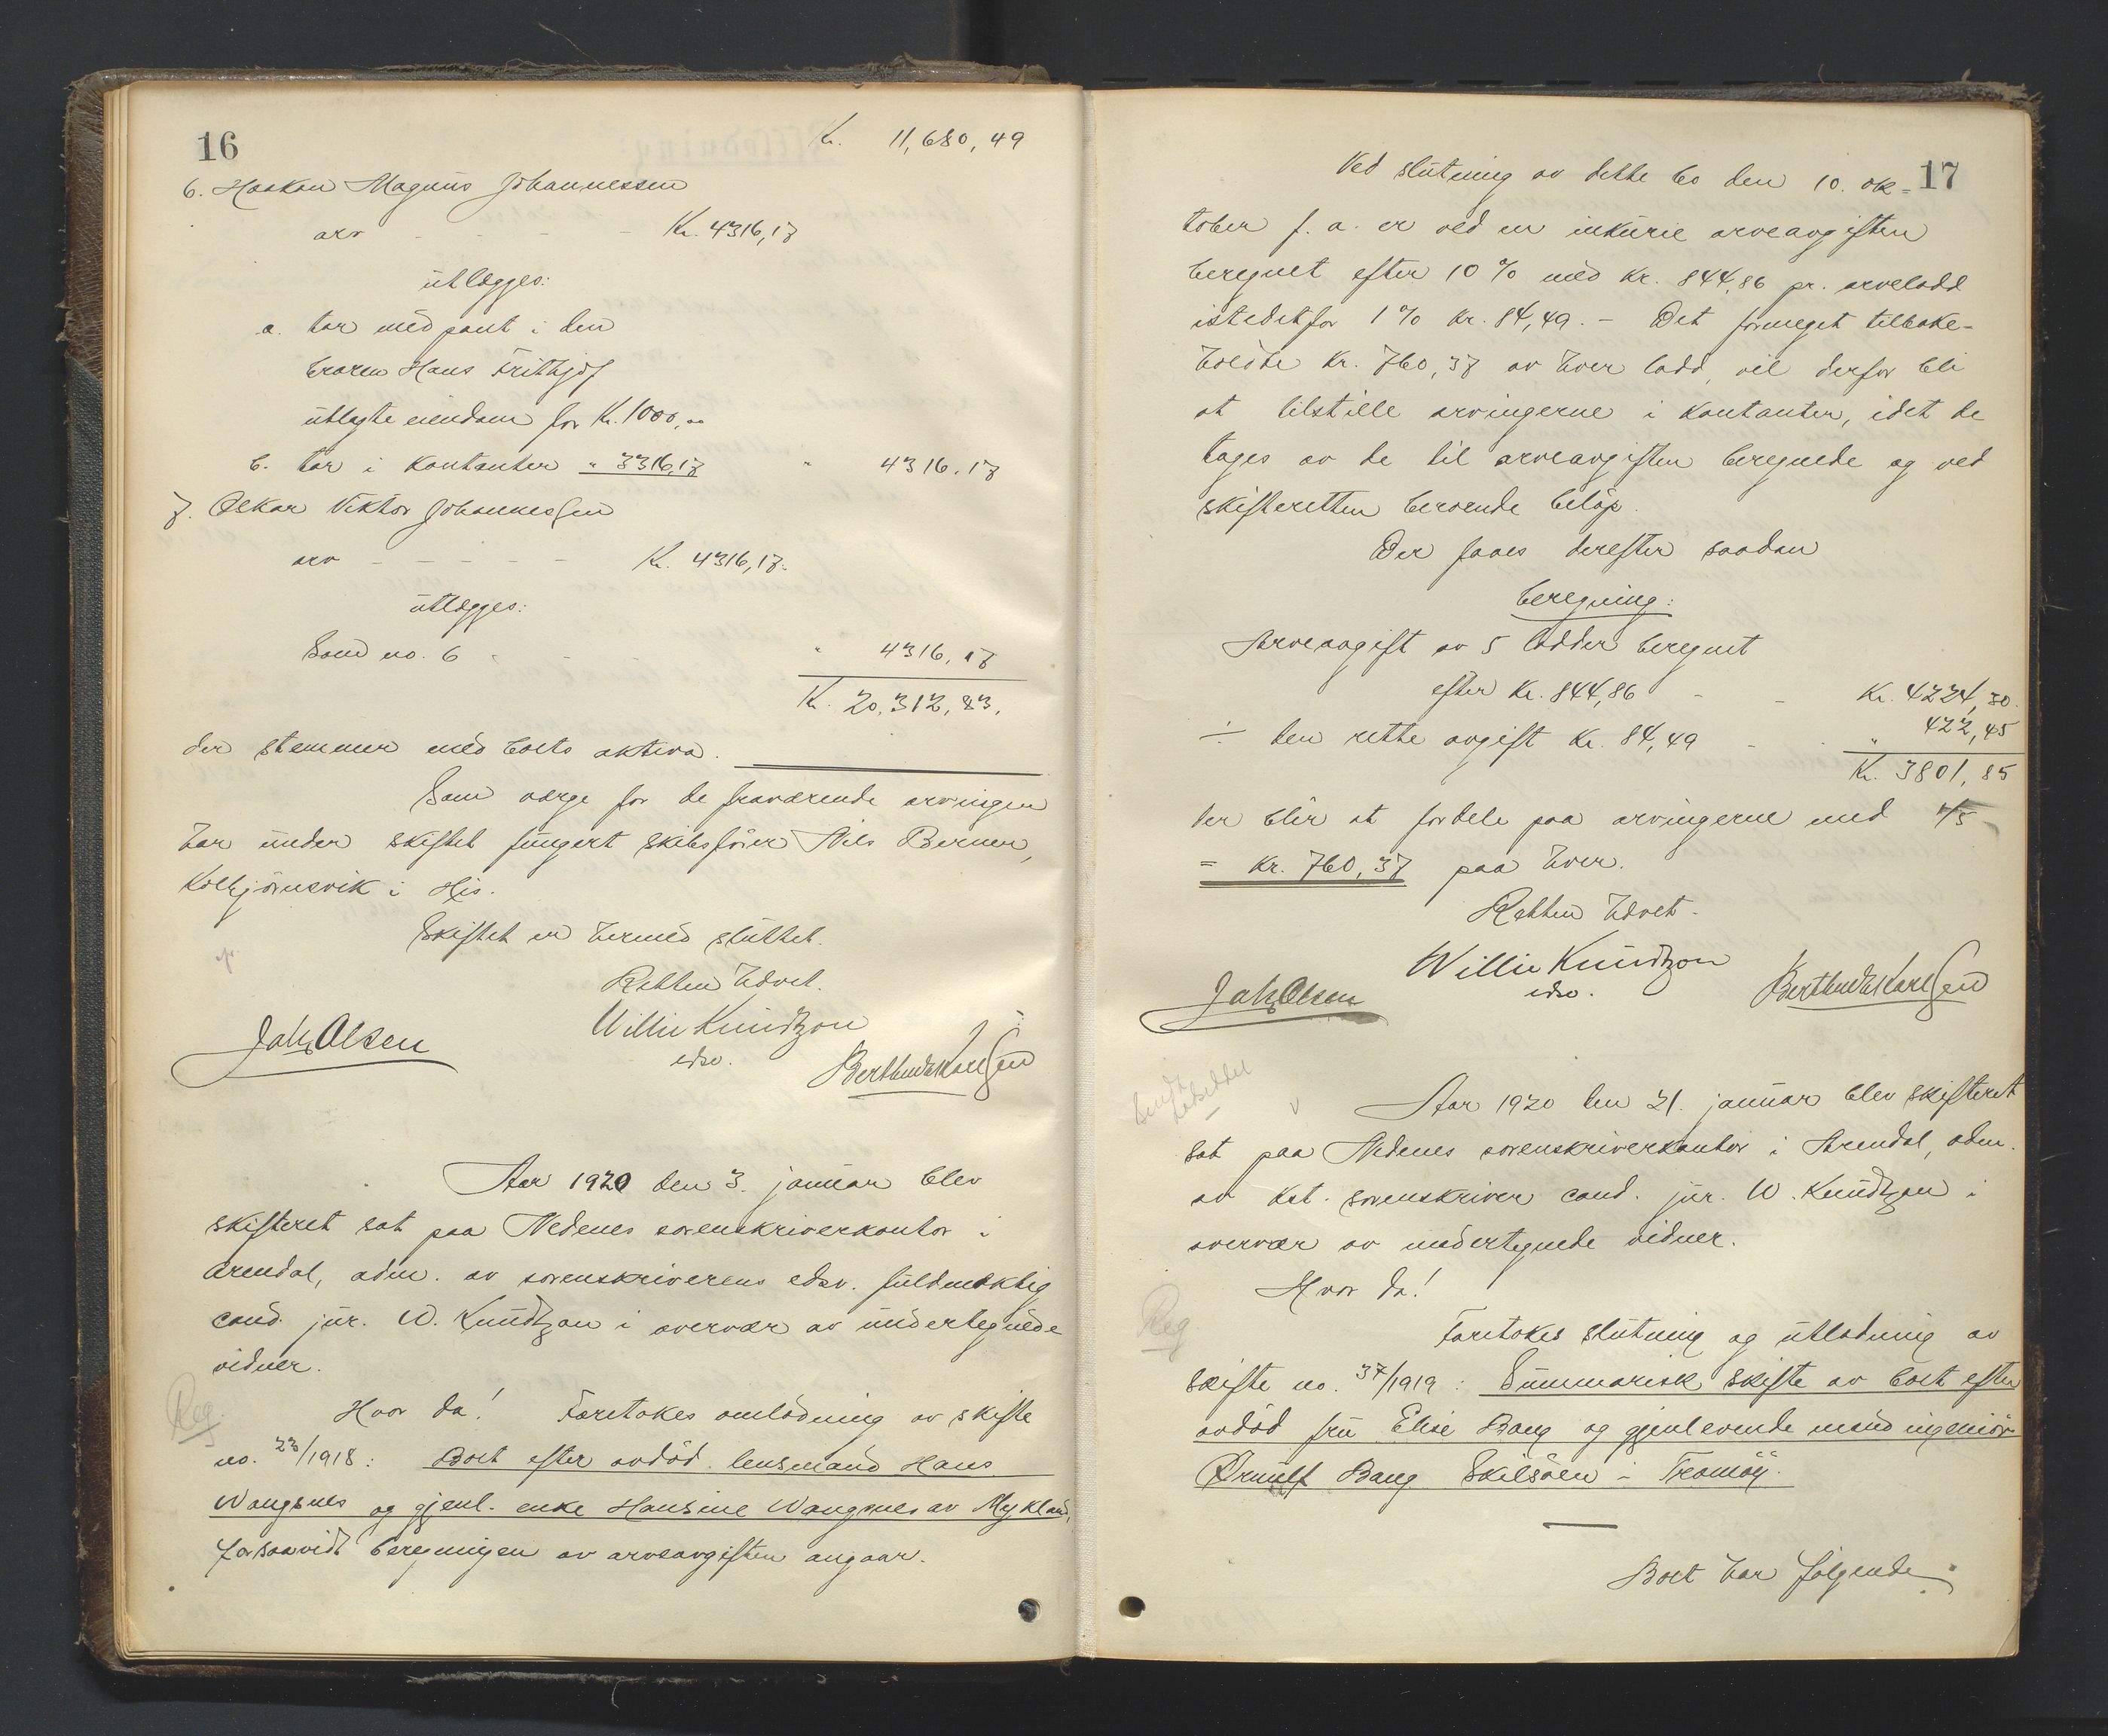 16
Kr. 11,680,49
6. Haakon Magnus Johannessen
arv - - - - Kr. 4316,17
utlægges:
a. har med pant i den
broren Hans Frithjof
utlagte eiendom for Kr. 1000,00
b. har i kontanter " 3316,17 " 4316,17
7. Oskar Viktor Johannessen
arv - - - - - Kr. 4316,17.
utlægges:
Som no. 6 - - - " 4316,17
Kr. 20,312,83.
der stemmer med boets aktiva.
Som værge for de fraværende arvinger
har under skiftet fungert skibsfører Nils Berner,
Kolbjørnsvik i His.
Skiftet er hermed sluttet.
Retten hævet.
Willie Knudtzon
edsv.
Joh. Olsen
Berthe Karlsen
Aar 1920 den 3. januar blev
skifteret sat paa Nedenes sorenskriverkontor i
Arendal, adm. av sorenskriverens edsv. fuldmæktig
cand. jur. W. Knudtzon i overvær av undertegnede
vidner.
Reg.
Hvor da! Foretokes omlodning av skifte
no. 23/1918: Boet efter avdød lensmand Hans
Wangsnes og gjenl. enke Hansine Wangsnes av Mykland,
forsaavidt beregningen av arveavgiften angaar.
17
Ved slutning av dette bo den 10. ok=
tober f. a. er ved en inkurie arveavgiften
beregnet efter 10% med kr. 844,86 pr. arvelodd
istedetfor 1% kr. 84,49. - Det formeget tilbake-
holdte kr. 760,37 av hver lodd, vil derfor bli
at tilstille arvingerne i kontanter, idet de
tages av de til arveavgiften beregnede og ved
skifteretten beroende beløp.
Der faaes derefter saadan
beregning:
Arveavgift av 5 lodder beregnet
efter kr. 844,86 - - Kr. 4224,30.
÷ den rette avgift kr. 84,49 - - " 422,45
Kr. 3801,85
der blir at fordele paa arvingerne med 1/5
= kr. 760,37 paa hver.
Retten hævet.
Willie Knudtzon
edsv.
Joh. Olsen
Berthe Karlsen
Aar 1920 den 21. januar blev skifteret
sat paa Nedenes sorenskriverkontor i Arendal, adm.
av kst. sorenskriver cand. jur. W. Knudtzon i
overvær av undertegnede vidner.
Hvor da!
Reg
Foretokes slutning og utlodning av
skifte no. 37/1919: Summarisk skifte av boet efter
avdød fru Elise Bang og gjenlevende mand ingeniør
Ørnulf Bang Skilsøen i Tromøy.
Boet har følgende